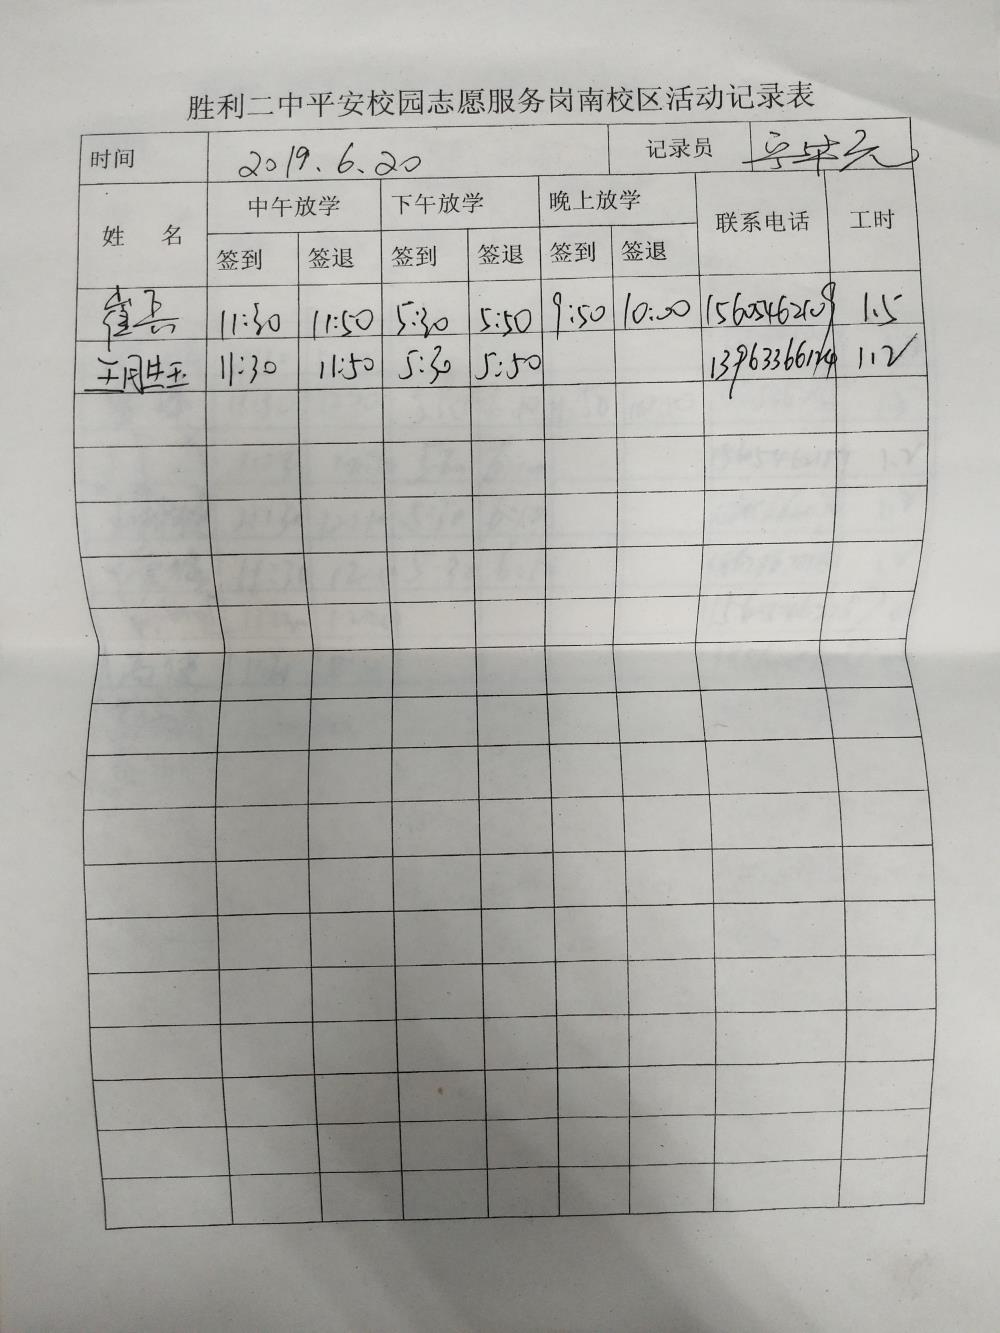 胜利二中平安校园志愿服务岗南校区活动记录表
时间 2019.6.20 记录员
姓 名 中午放学 下午放学 晚上放学 联系电话 工时
签到 签退 签到 签退 签到 签退
崔兵 11:30 11:50 5:30 5:50 9:50 10:00 15605462109 1.5
11:30 11:50 5:30 5:50 1.2